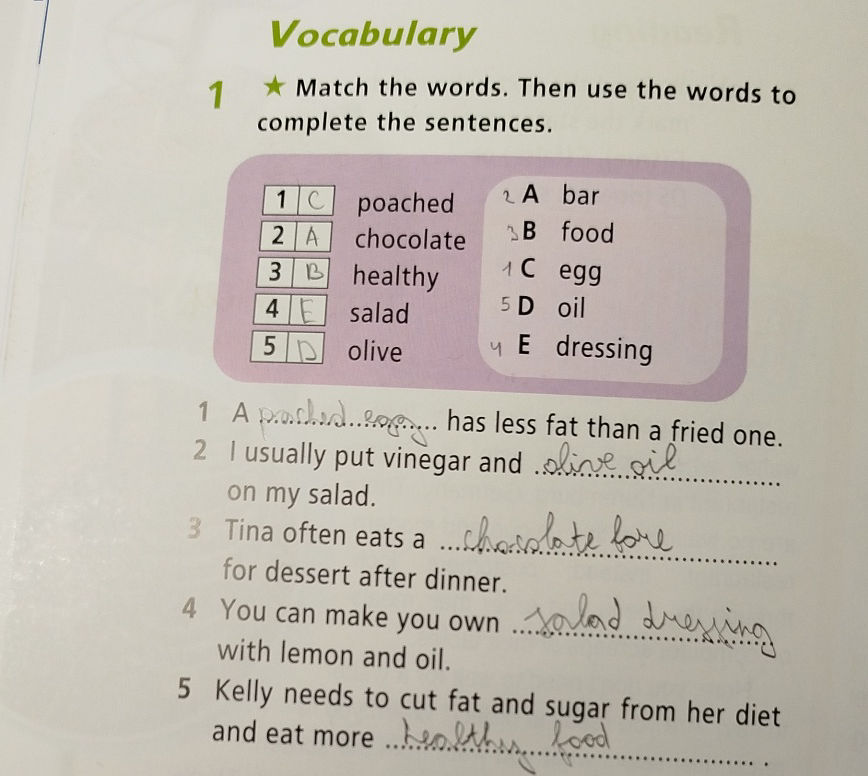 Vocabulary
1 ★ Match the words. Then use the words to
complete the sentences.
1 C poached 2 A bar
2 A chocolate 3 B food
3 B healthy 1 C egg
4 E salad 5 D oil
5 D olive 4 E dressing
1 A poached egg has less fat than a fried one.
2 I usually put vinegar and olive oil
on my salad.
3 Tina often eats a chocolate
for dessert after dinner.
4 You can make you own salad dressing
with lemon and oil.
5 Kelly needs to cut fat and sugar from her diet
and eat more healthy food.